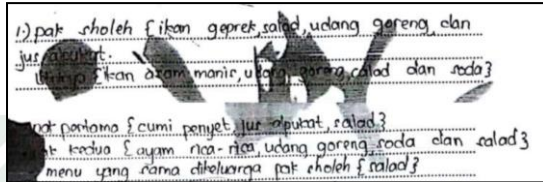 1.) pak sholeh {ikan geprek, salad, udang goreng, dan
jus alpukat.
{ikan asam manis, udang goreng, salad dan soda}
pertama {cumi penyet, jus alpukat, salad}
kedua {ayam rica-rica, udang goreng, soda dan salad}
menu yang sama dikeluarga pak sholeh {salad}